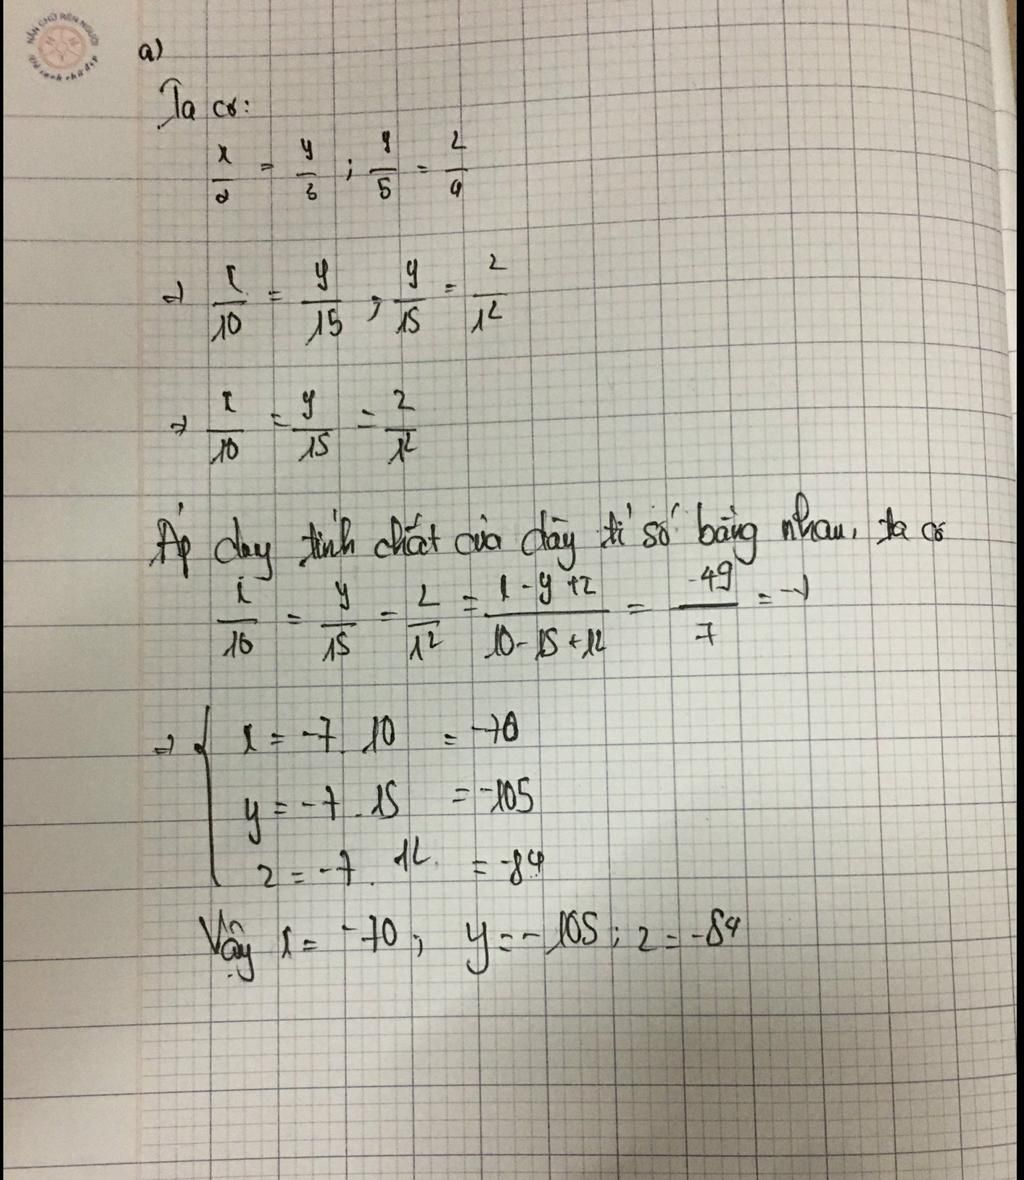 NẮN CHỮ RÈN NGƯỜI
a)
Ta có:
x/2 = y/3 ; y/5 = z/4
⇒ x/10 = y/15 ; y/15 = z/12
⇒ x/10 = y/15 = z/12
Áp dụng tính chất của dãy tỉ số bằng nhau, ta có
x/10 = y/15 = z/12 = x - y + z / 10 - 15 + 12 = -49/7 = -7
⇒ { x = -7 . 10 = -70
y = -7 . 15 = -105
z = -7 . 12 = -84
Vậy x = -70 ; y = -105 ; z = -84